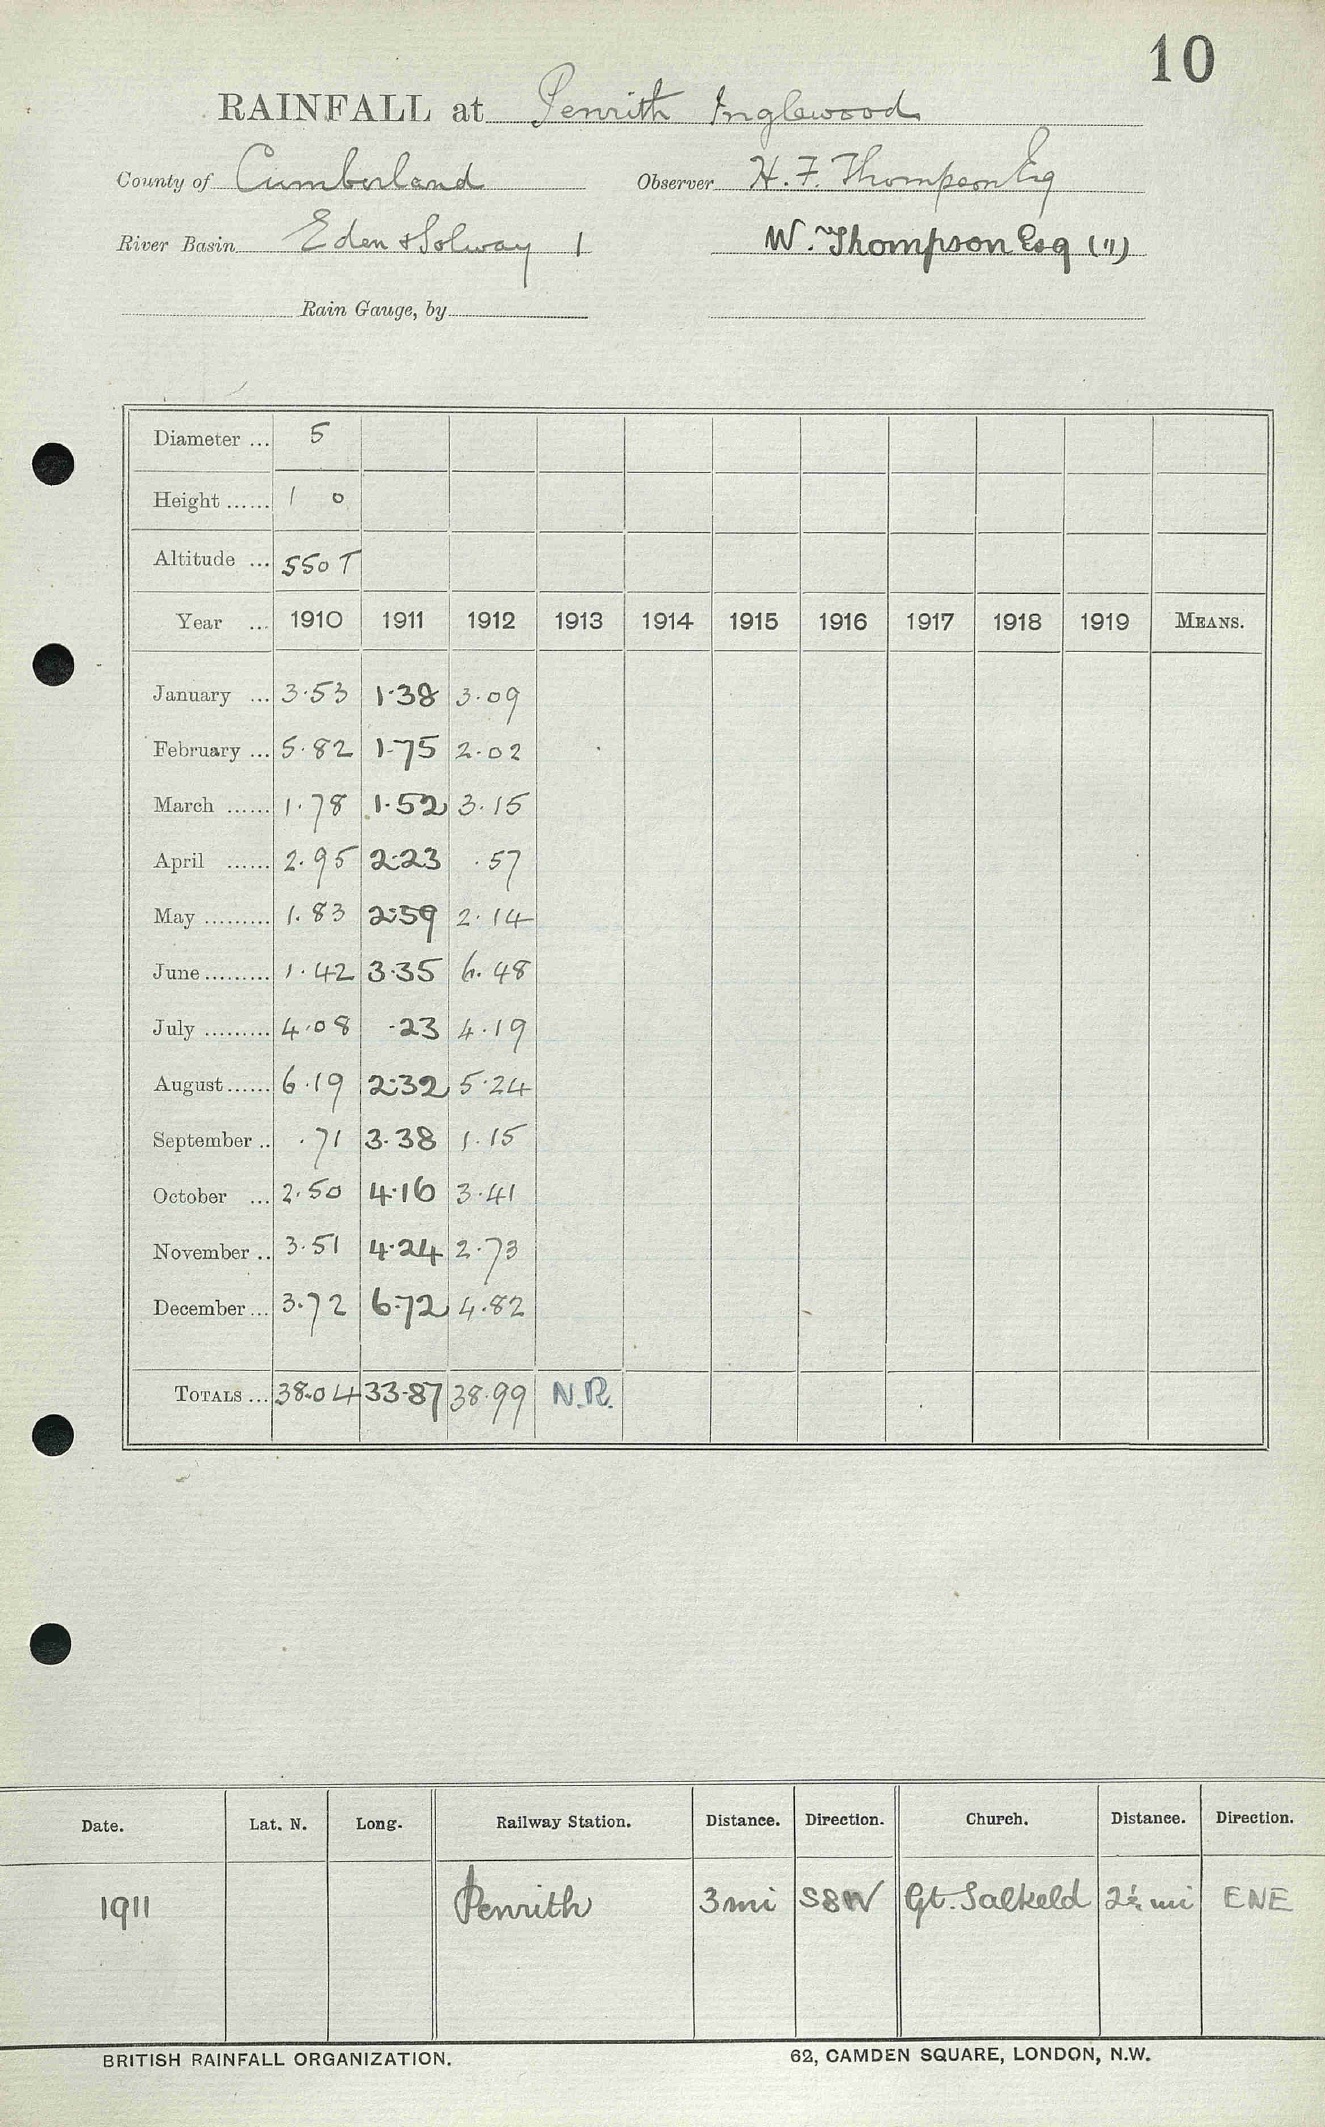 10
RAINFALL at Penrith Inglewood
County of Cumberland Observer H. F. Thompson Esq
River Basin Eden & Solway 1 W. Thompson Esq (11)
Rain Gauge, by
Diameter ... 5
Height ...... 1 0
Altitude ... 550 T
Year ... 1910 1911 1912 1913 1914 1915 1916 1917 1918 1919 MEANS.
January ... 3.53 1.38 3.09
February ... 5.82 1.75 2.02
March ...... 1.78 1.52 3.15
April ...... 2.95 2.23 .57
May ......... 1.83 2.59 2.14
June ......... 1.42 3.35 6.48
July ......... 4.08 .23 4.19
August ...... 6.19 2.32 5.24
September .. .71 3.38 1.15
October ... 2.50 4.16 3.41
November .. 3.51 4.24 2.73
December ... 3.72 6.72 4.82
TOTALS ... 38.04 33.87 38.99 N.R.
Date. Lat. N. Long. Railway Station. Distance. Direction. Church. Distance. Direction.
1911 Penrith 3 mi Gt. Salkeld 2½ mi ENE
BRITISH RAINFALL ORGANIZATION. 62, CAMDEN SQUARE, LONDON, N.W.